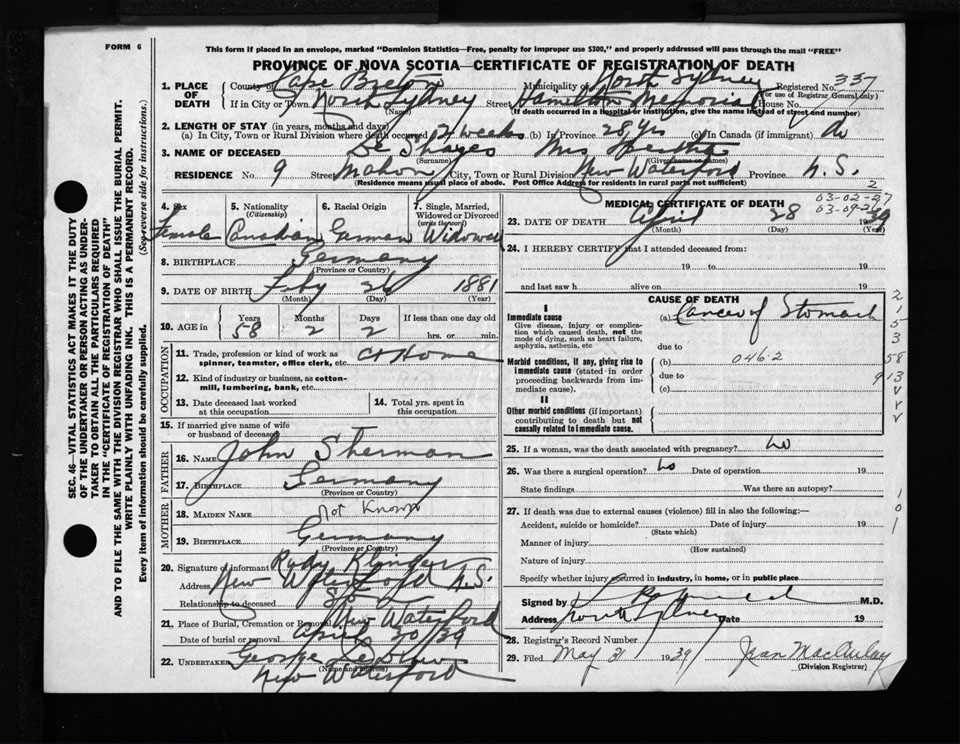 FORM 6
This form if placed in an envelope, marked "Dominion Statistics—Free, penalty for improper use $300," and properly addressed will pass through the mail "FREE"
PROVINCE OF NOVA SCOTIA—CERTIFICATE OF REGISTRATION OF DEATH
1. PLACE OF DEATH
County Cape Breton Municipality of North Sydney Registered No. 337
(For use of Registrar General only)
If in City or Town North Sydney Street Hamilton Memorial House No.
(Name) (If death occurred in a hospital or institution, give the name instead of street and number)
2. LENGTH OF STAY (in years, months and days)
(a) In City, Town or Rural Division where death occurred 2 weeks (b) In Province 28 yrs (c) in Canada (if immigrant) do
3. NAME OF DECEASED De Shayes Mrs Bertha
(Surname) (Given name or names)
RESIDENCE No. 9 Street Mahon City, Town or Rural Division New Waterford Province N.S.
(Residence means usual place of abode. Post Office Address for residents in rural parts not sufficient)
4. Sex Female
5. Nationality (Citizenship) Canadian
6. Racial Origin German
7. Single, Married, Widowed or Divorced (write the word) Widowed
8. BIRTHPLACE Germany
(Province or Country)
9. DATE OF BIRTH Feby 26 1881
(Month) (Day) (Year)
10. AGE in Years 58 Months 2 Days 2 If less than one day old
hrs. or min.
OCCUPATION
11. Trade, profession or kind of work as spinner, teamster, office clerk, etc. at Home
12. Kind of industry or business, as cotton-mill, lumbering, bank, etc.
13. Date deceased last worked at this occupation
14. Total yrs. spent in this occupation
15. If married give name of wife or husband of deceased
FATHER
16. NAME John Sherman
17. BIRTHPLACE Germany
(Province or Country)
MOTHER
18. MAIDEN NAME Not Known
19. BIRTHPLACE Germany
(Province or Country)
20. Signature of informant Rudy
Address New Waterford N.S.
Relationship to deceased
21. Place of Burial, Cremation or Removal New Waterford
Date of burial or removal April 30/39
22. UNDERTAKER George
(Name and address)
New Waterford
MEDICAL CERTIFICATE OF DEATH
2
03-02-27
03-09-26
23. DATE OF DEATH April 28 1939
(Month) (Day) (Year)
24. I HEREBY CERTIFY that I attended deceased from:
19 to 19
and last saw h alive on 19
CAUSE OF DEATH
I
Immediate cause
Give disease, injury or complication which caused death, not the mode of dying, such as heart failure, asphyxia, asthenia, etc
(a) Cancer of Stomach
due to
Morbid conditions, if any, giving rise to immediate cause (stated in order proceeding backwards from immediate cause).
(b) 046.2
due to
(c)
II
Other morbid conditions (if important) contributing to death but not causally related to immediate cause.
25. If a woman, was the death associated with pregnancy? No
26. Was there a surgical operation? No Date of operation 19
State findings Was there an autopsy?
27. If death was due to external causes (violence) fill in also the following:—
Accident, suicide or homicide? Date of injury 19
(State which)
Manner of injury
(How sustained)
Nature of injury
Specify whether injury occurred in industry, in home, or in public place
Signed by M.D.
Address North Sydney Date 19
28. Registrar's Record Number
29. Filed May 31 1939 Jean MacAulay
(Division Registrar)
2
5
3
58
9 13
1
0
1
SEC. 46—VITAL STATISTICS ACT MAKES IT THE DUTY
OF THE UNDERTAKER OR PERSON ACTING AS UNDER-
TAKER TO OBTAIN ALL THE PARTICULARS REQUIRED
IN THE "CERTIFICATE OF REGISTRATION OF DEATH"
AND TO FILE THE SAME WITH THE DIVISION REGISTRAR WHO SHALL ISSUE THE BURIAL PERMIT.
WRITE PLAINLY WITH UNFADING INK. THIS IS A PERMANENT RECORD.
Every item of information should be carefully supplied. (See reverse side for instructions.)